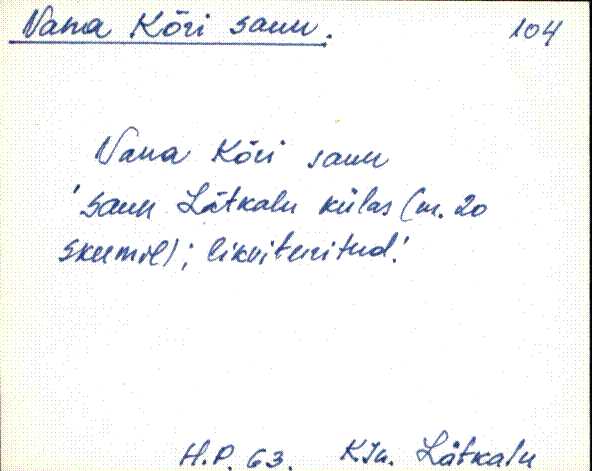 Vana Kõri saun. 104
Vana Kõri saun
'saun Lätkalu külas (m. 20
skeemil); likviteeritud.'
H.P. 63. KJn. Lätkalu